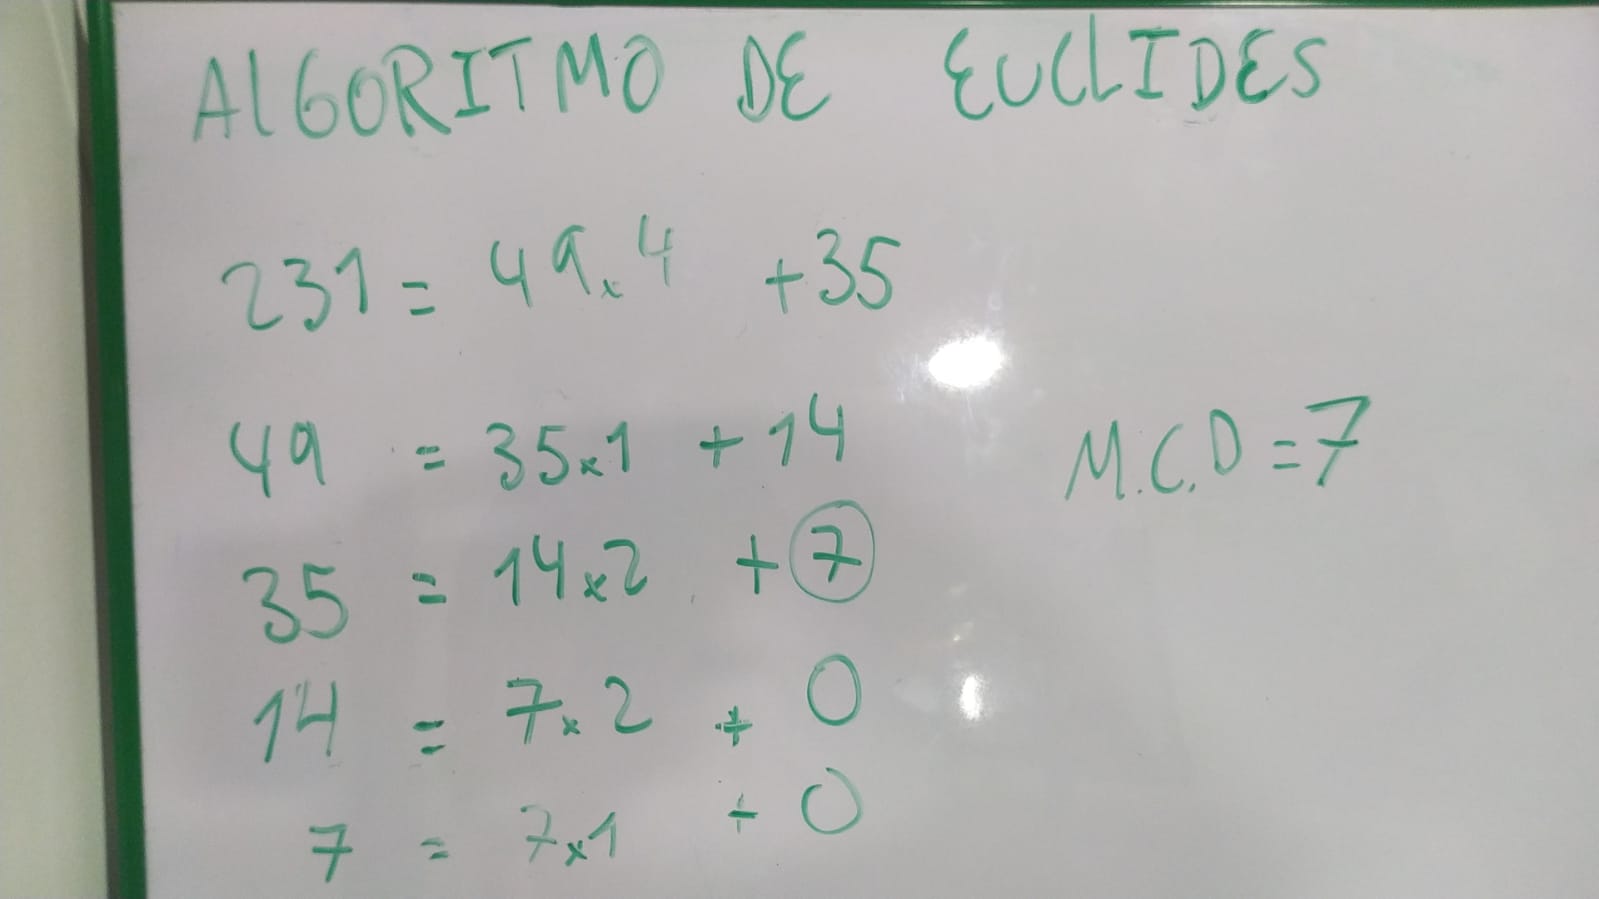 ALGORITMO DE EUCLIDES
231 = 49x4 +35
49 = 35x1 + 14
M.C.D = 7
35 = 14x2 + 7
14 = 7x2 + 0
7 = 7x1 + 0